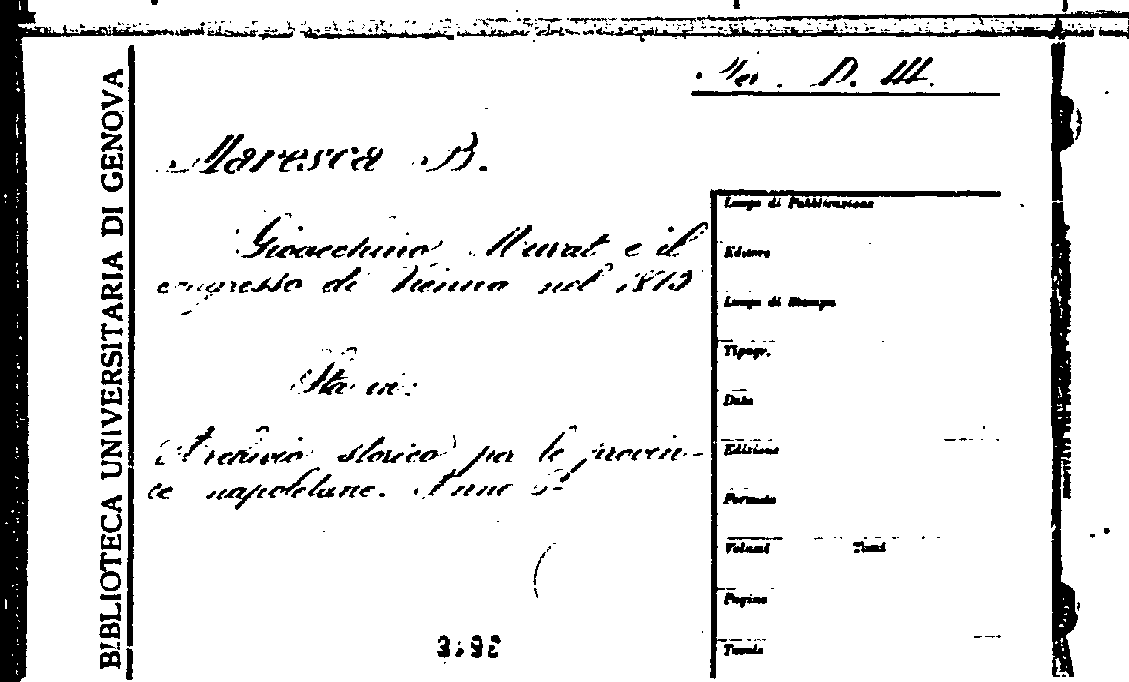 BIBLIOTECA UNIVERSITARIA DI GENOVA
Per. D. III.
Maresca B.
Gioacchino Murat e il
congresso di Vienna nel 1815
Sta in:
Archivio storico per le provin-
ce napoletane. Anno 6º
Luogo di Pubblicazione
Editore
Luogo di Stampa
Tipogr.
Data
Edizione
Formato
Volumi Tomi
Pagine
Tavole